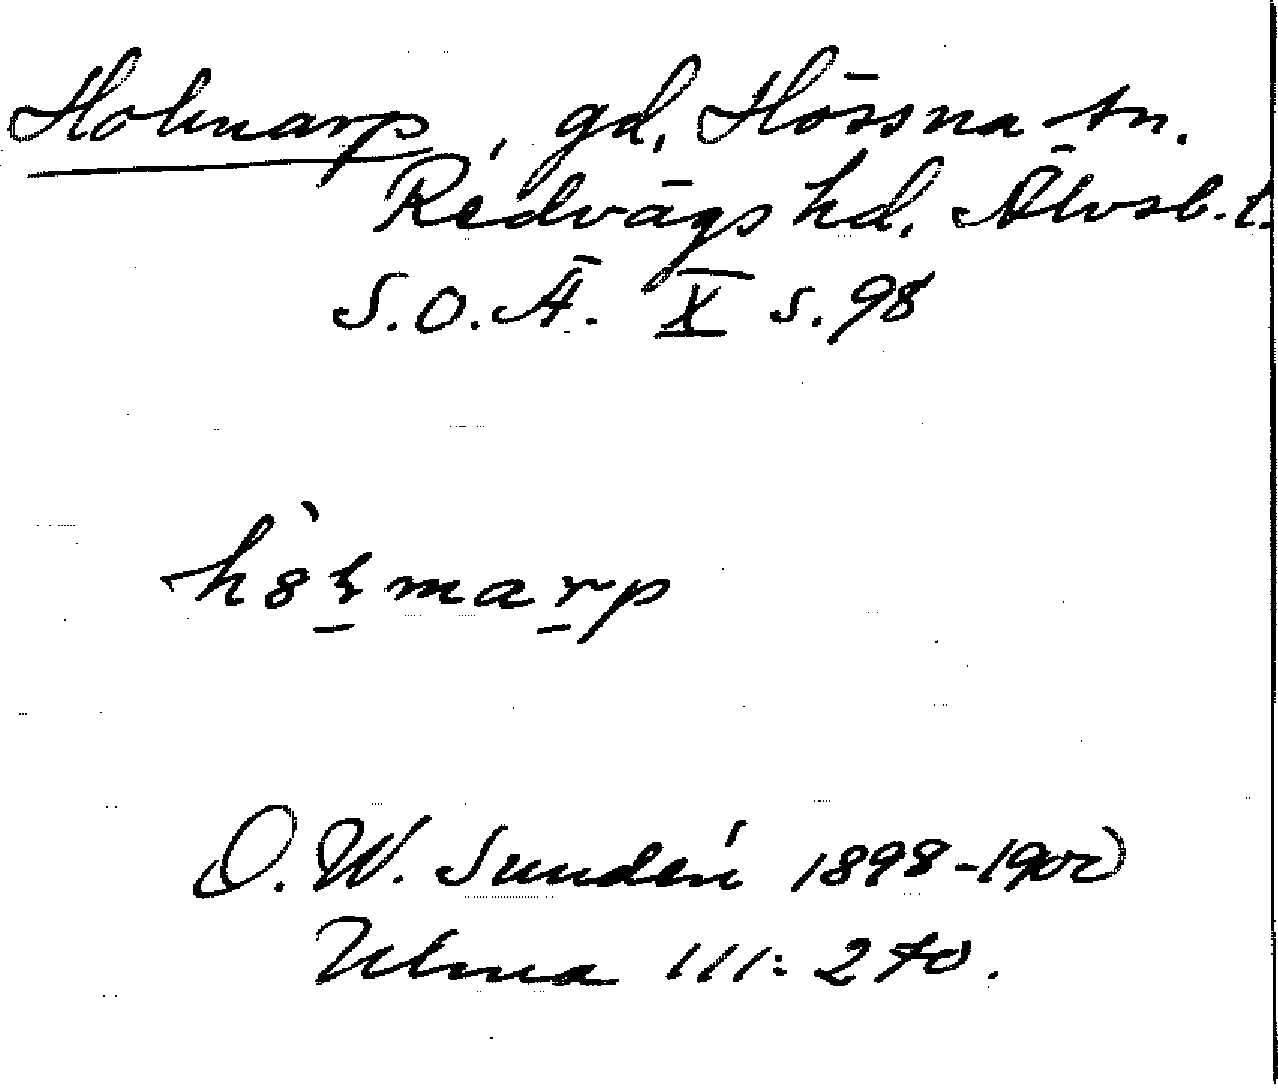 Holmarp, gd, Hössna sn.
Redvägs hd, Älvsb. l.
S.O.Ä. X s. 98
O. W. Sundén 1898-1902
Ulma 111: 270.